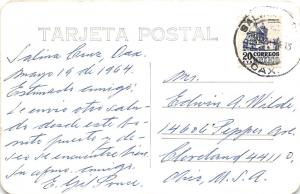 TARJETA POSTAL
Salina Cruz, Oax.
Mayo 19 de 1964.
Estimado amigo:
Le envio otro salu-
do desde este bo-
nito puerto y de-
seo se encuentre bien.
Su afmo. amigo.
E.
Mr.
Edwin A. Wilde
14606 Pepper Ave.
Cleveland 44110,
Ohio U.S.A.
20
CORREOS
OAX.